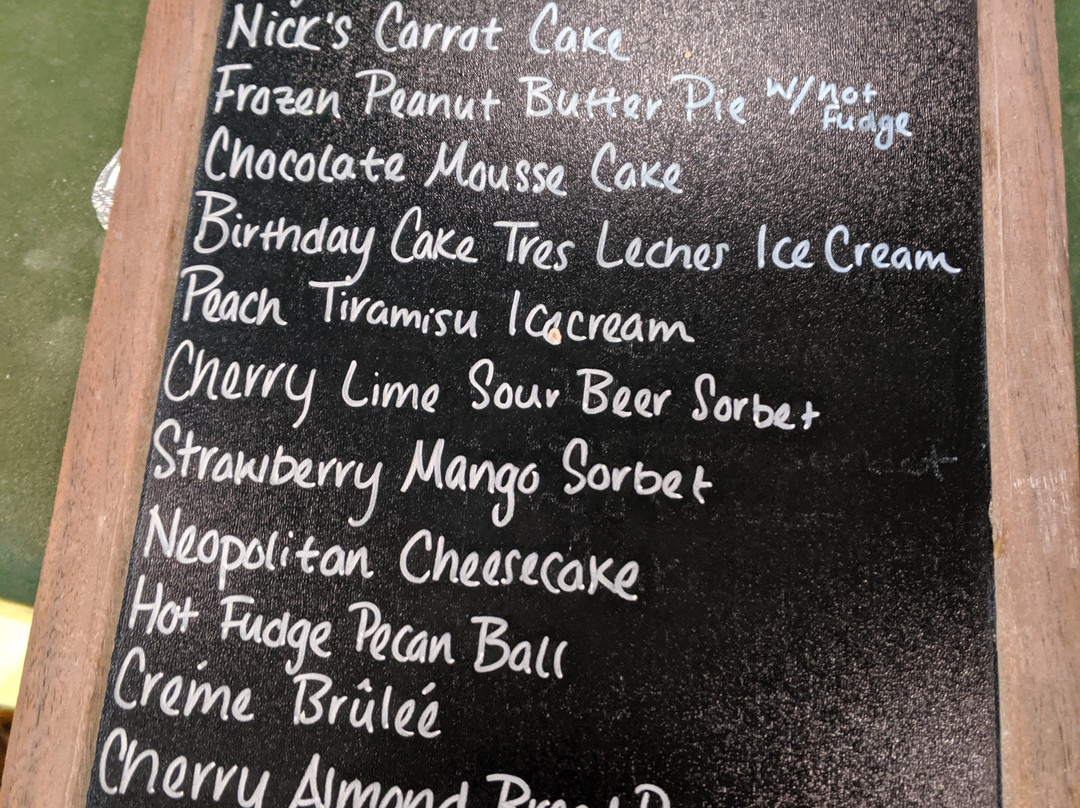 Nick's Carrot Cake
Frozen Peanut Butter Pie w/hot Fudge
Chocolate Mousse Cake
Birthday Cake Tres Leches Ice Cream
Peach Tiramisu Icecream
Cherry Lime Sour Beer Sorbet
Strawberry Mango Sorbet
Neopolitan Cheesecake
Hot Fudge Pecan Ball
Créme Brûléé
Cherry Almond